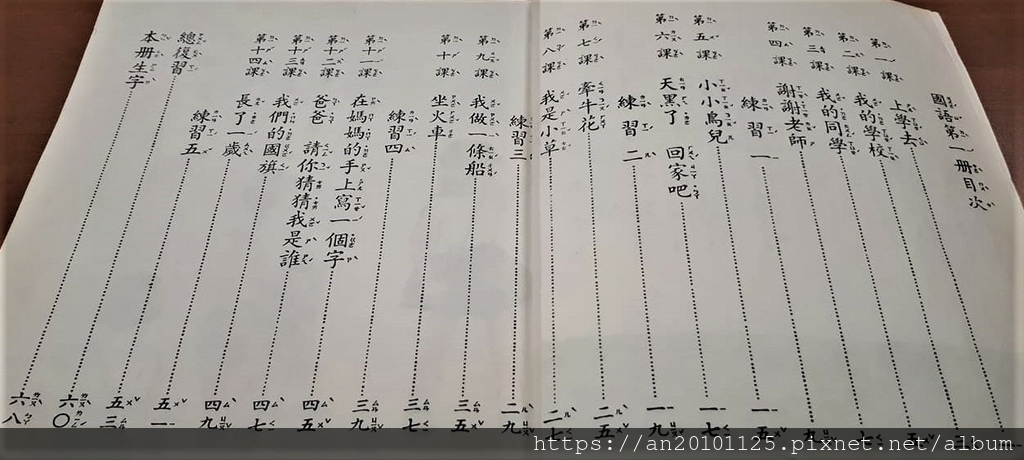 國語第一册目次
第一課 上學去 一
第二課 我的學校 三
第三課 我的同學 五
第四課 謝謝老師 七
練習一 九
第五課 小小鳥兒 一五
第六課 天黑了 回家吧 一七
練習二 一九
第七課 牽牛花 二五
第八課 我是小草 二七
練習三 二九
第九課 我做一條船 三五
第十課 坐火車 三七
練習四 三九
第十一課 在媽媽的手上寫一個字 四五
第十二課 爸爸 請你猜猜我是誰 四七
第十三課 我們的國旗 四九
第十四課 長了一歲 五一
練習五 五三
總復習 六〇
本册生字 六八
https://an20101125.pixnet.net/album